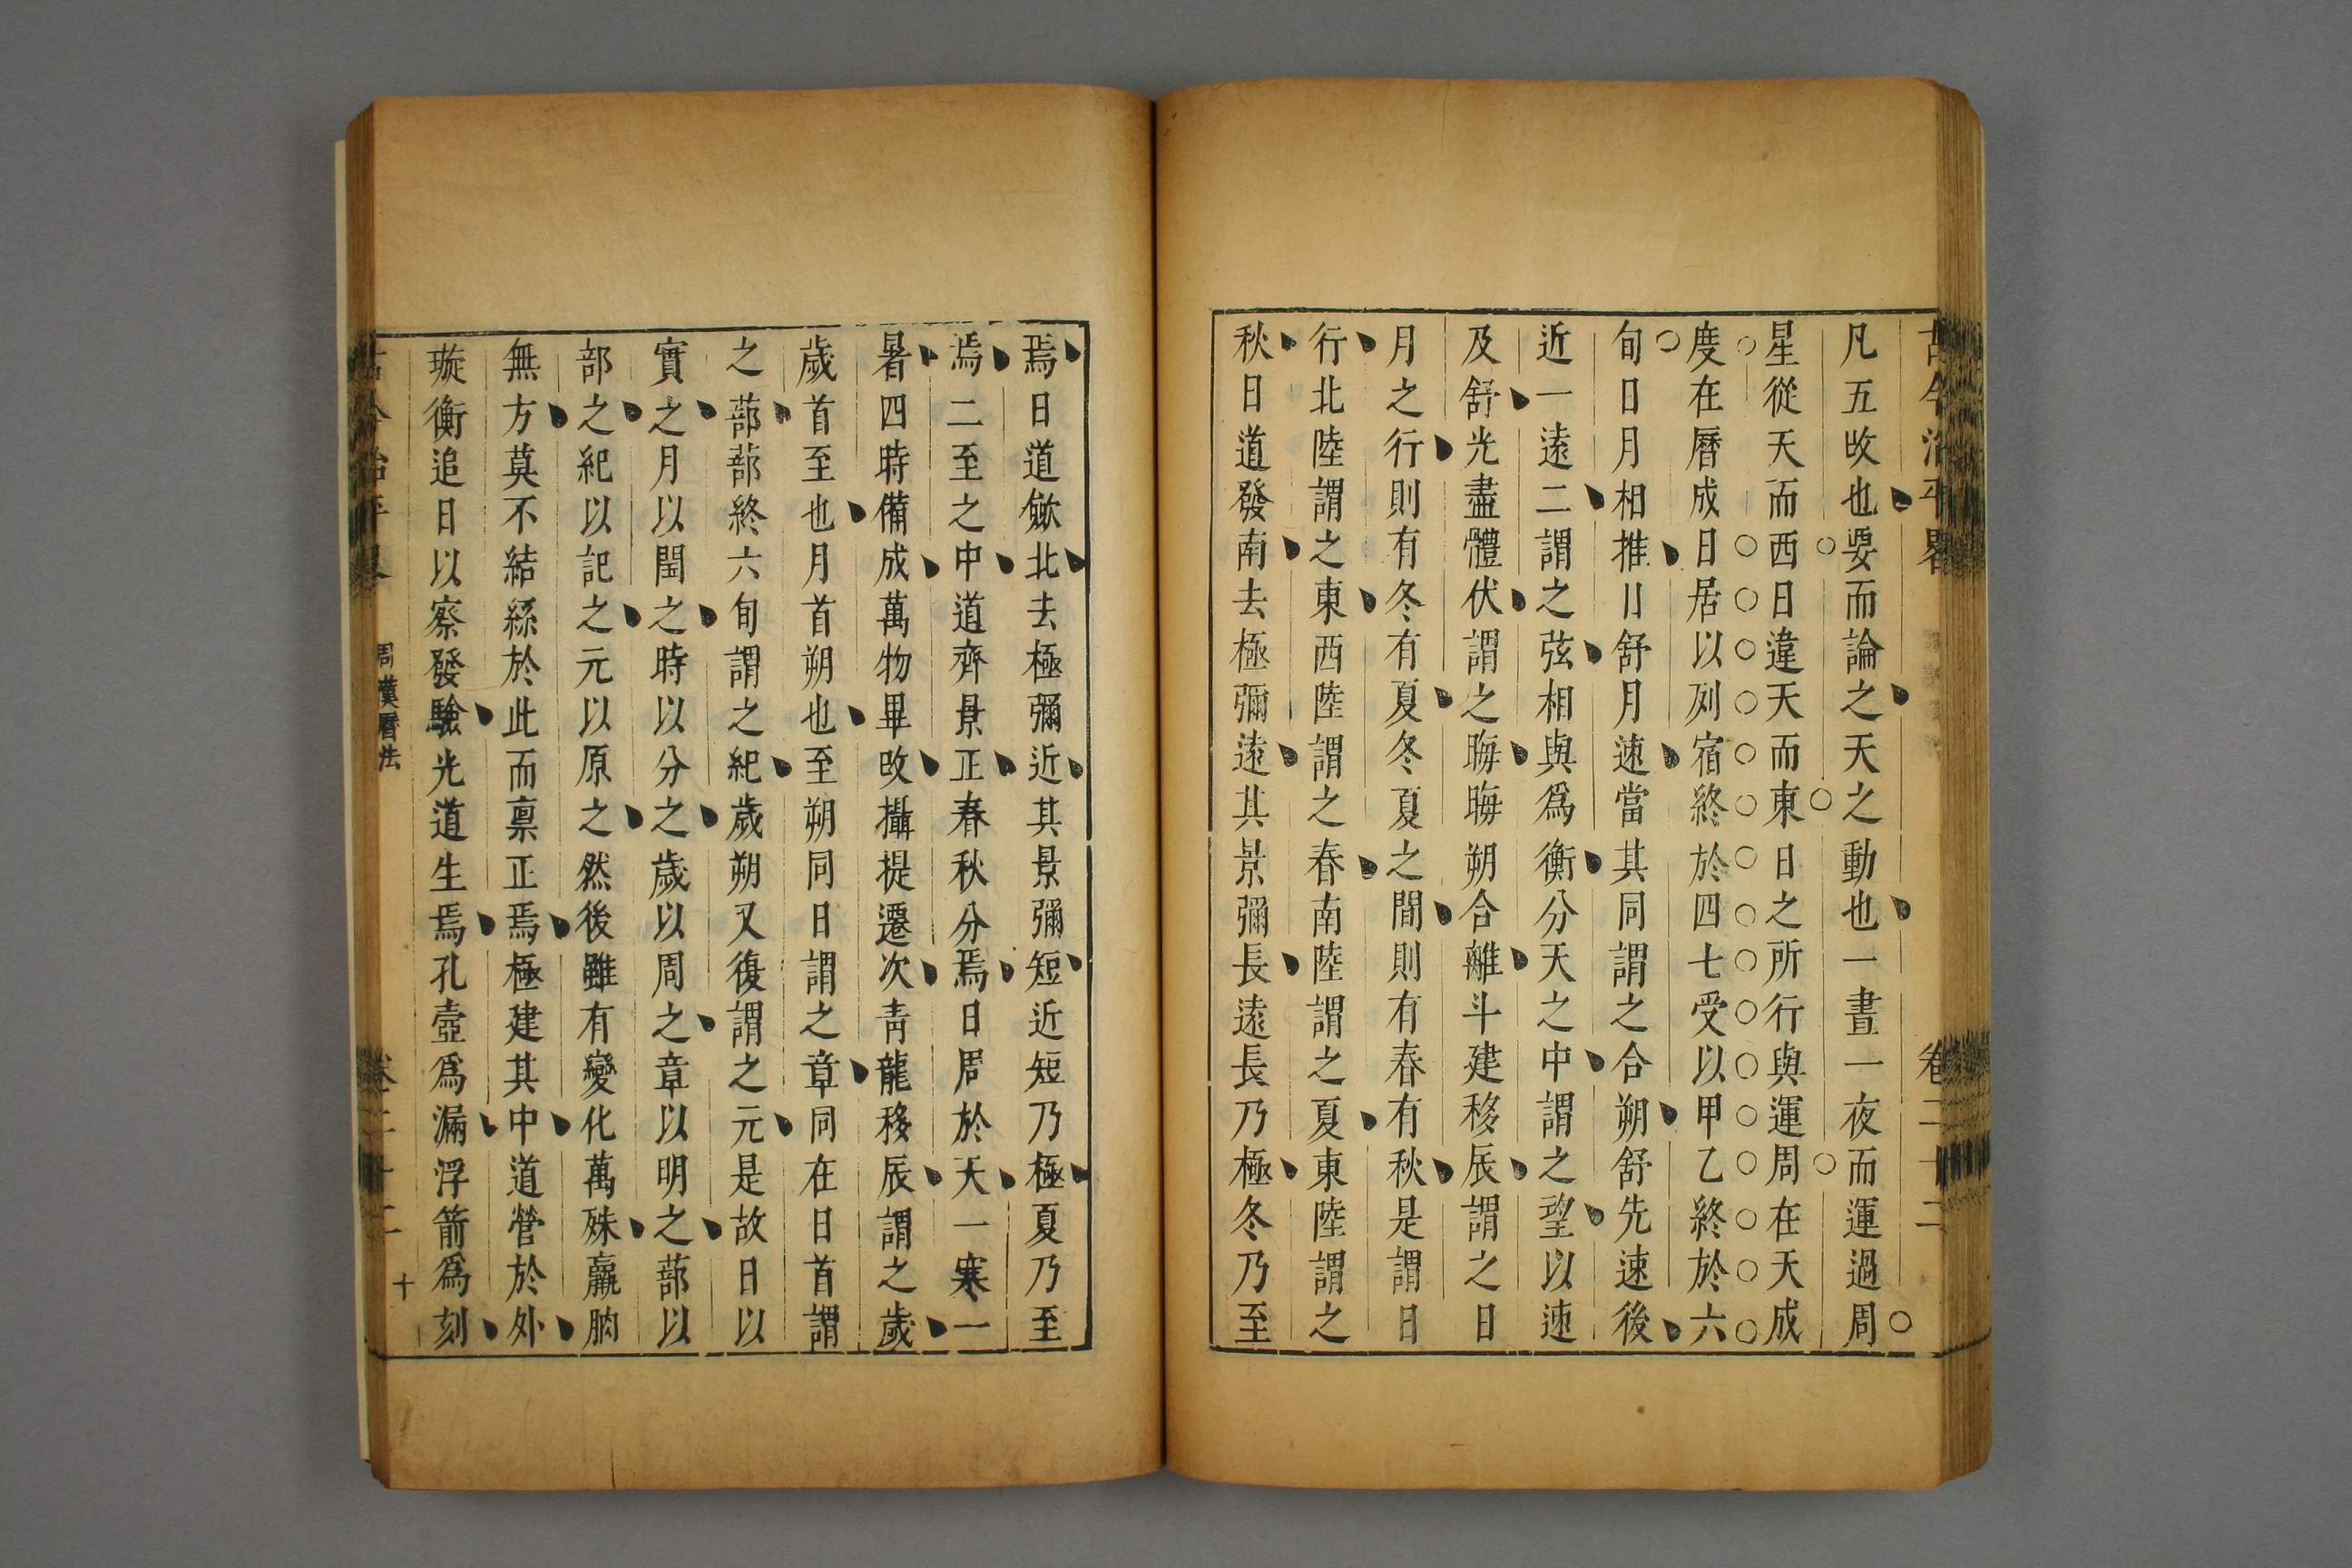 古今治平畧 卷二十二
凡五改也要而論之天之動也一晝一夜而運過周
星從天而西日違天而東日之所行與運周在天成
度在曆成日居以列宿終於四七受以甲乙終於六
旬日月相推日舒月速當其同謂之合朔舒先速後
近一遠二謂之弦相與爲衡分天之中謂之望以速
及舒光盡體伏謂之晦晦朔合離斗建移辰謂之日
月之行則有冬有夏冬夏之間則有春有秋是謂日
行北陸謂之東西陸謂之春南陸謂之夏東陸謂之
秋日道發南去極彌遠其景彌長遠長乃極冬乃至
焉日道歛北去極彌近其景彌短近短乃極夏乃至
焉二至之中道齊景正春秋分焉日周於天一寒一
暑四時備成萬物畢改攝提遷次靑龍移辰謂之歲
歲首至也月首朔也至朔同日謂之章同在日首謂
之蔀蔀終六旬謂之紀歲朔又復謂之元是故日以
實之月以閏之時以分之歲以周之章以明之蔀以
部之紀以記之元以原之然後雖有變化萬殊贏朒
無方莫不結綵於此而禀正焉極建其中道營於外
璇衡追日以察發驗光道生焉孔壺爲漏浮箭爲刻
古今治平畧 周漢曆法 卷二十二 十